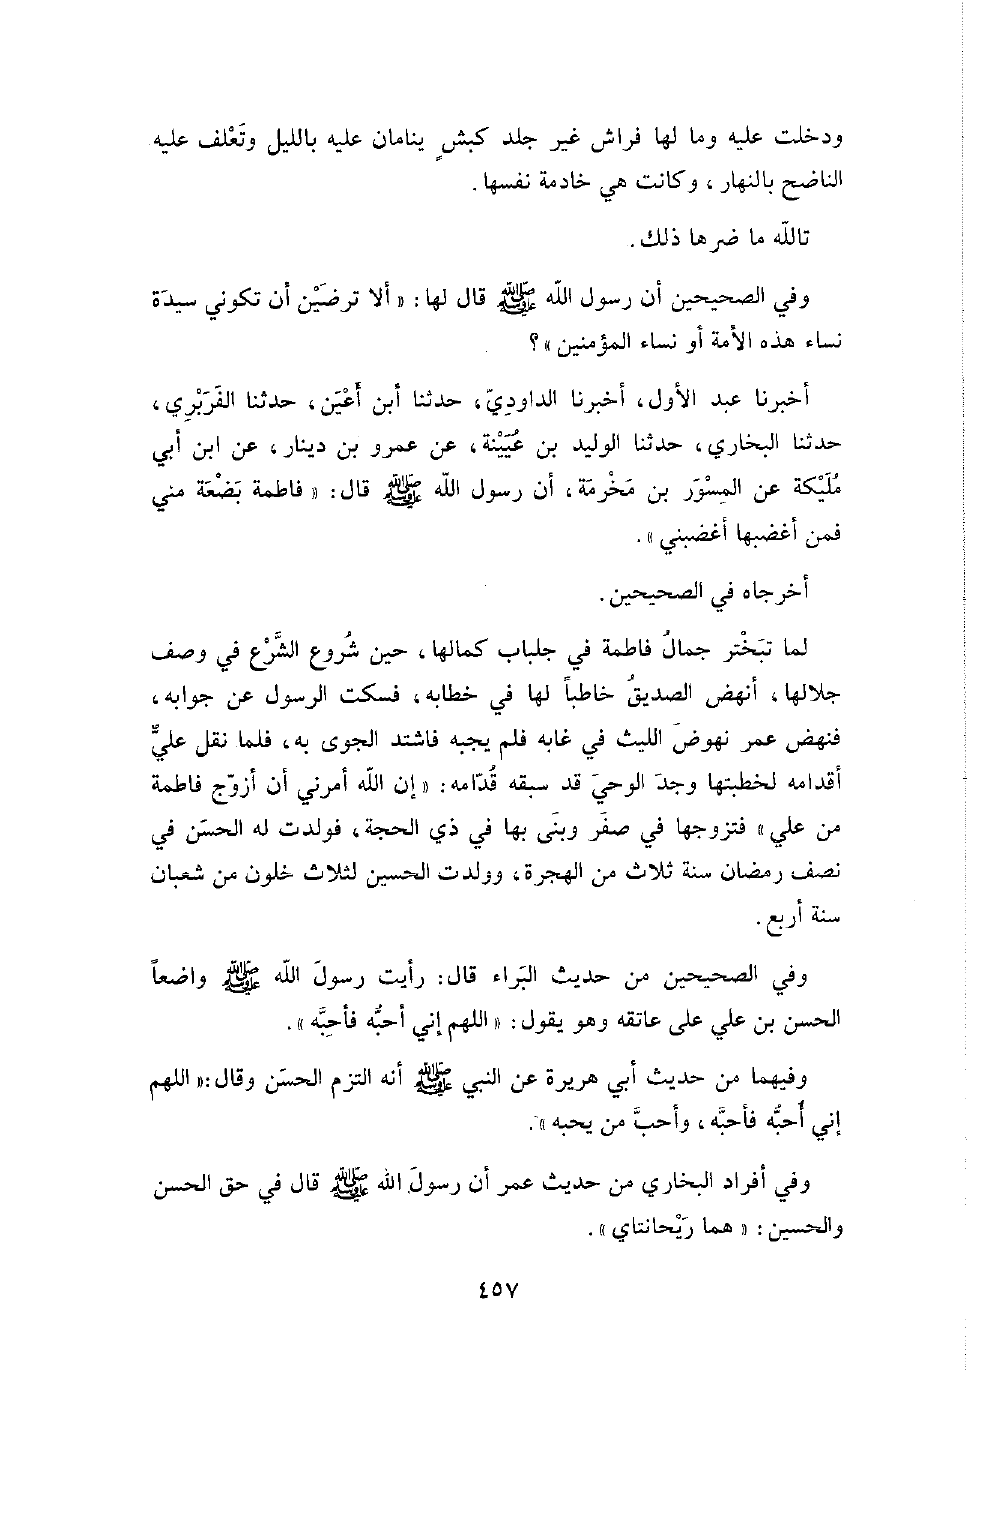 ودخلت عليه وما لها فراش غير جلد كبشٍ ينامان عليه بالليل وتَعْلف عليه
الناضح بالنهار ، وكانت هي خادمة نفسها .
تاللّه ما ضرها ذلك .
وفي الصحيحين أن رسول اللّه ﷺ قال لها : « ألا ترضَيْن أن تكوني سيدَة
نساء هذه الأمة أو نساء المؤمنين » ؟
أخبرنا عبد الأول ، أخبرنا الداودِيّ ، حدثنا أبن أَعْيَن ، حدثنا الفَرَبْرِي ،
حدثنا البخاري ، حدثنا الوليد بن عُيَيْنة ، عن عمرو بن دينار ، عن ابن أبي
مُلَيْكة عن المِسْوَر بن مَخْرمَة ، أن رسول اللّه ﷺ قال : « فاطمة بَضْعَة مني
فمن أغضبها أغضبني » .
أخرجاه في الصحيحين .
لما تبَخْتر جمالُ فاطمة في جلباب كمالها ، حين شُروع الشَّرْع في وصف
جلالها ، أنهض الصديقُ خاطباً لها في خطابه ، فسكت الرسول عن جوابه ،
فنهض عمر نهوضَ الليث في غابه فلم يجبه فاشتد الجوى به ، فلما نقل عليٌّ
أقدامه لخطبتها وجدَ الوحيَ قد سبقه قُدّامه : « إن اللّه أمرني أن أزوّج فاطمة
من علي » فتزوجها في صفَر وبنَى بها في ذي الحجة ، فولدت له الحسَن في
نصف رمضان سنة ثلاث من الهجرة ، وولدت الحسين لثلاث خلون من شعبان
سنة أربع .
وفي الصحيحين من حديث البَراء قال : رأيت رسولَ اللّه ﷺ واضعاً
الحسن بن علي على عاتقه وهو يقول : « اللهم إني أحبُّه فأحِبَّه » .
وفيهما من حديث أبي هريرة عن النبي ﷺ أنه التزم الحسَن وقال :« اللهم
إني أُحبُّه فأحبَّه ، وأحبَّ من يحبه » .
وفي أفراد البخاري من حديث عمر أن رسولَ الله ﷺ قال في حق الحسن
والحسين : « هما رَيْحانتاي » .
٤٥٧